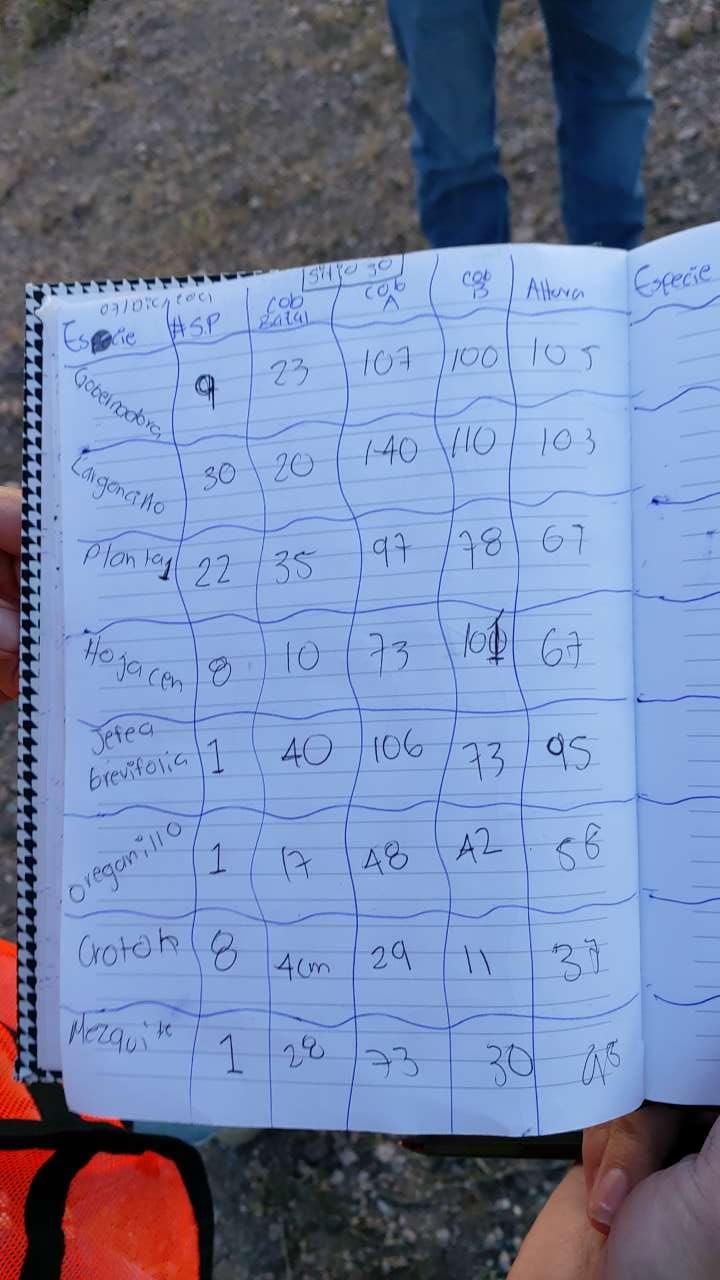 SITIO 30
07/Dic/2021
Especie #SP cob Basal cob A cob B Altura Especie
Gobernadora 9 23 107 100 105
Largoncillo 30 20 140 110 103
Planta 1 22 35 97 78 67
Hojacen 8 10 73 101 67
Jefea brevifolia 1 40 106 73 95
Oreganillo 1 17 48 42 56
Croton 8 4cm 29 11 37
Mezquite 1 28 73 30